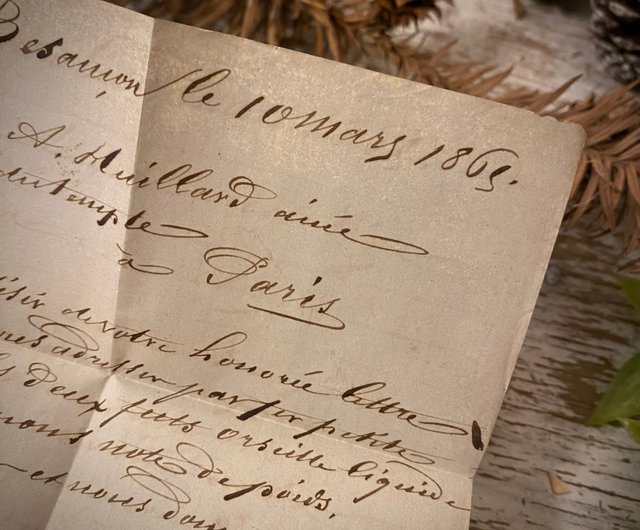 Besançon le 10 mars 1865.
A. Huillard ainé
du temple
à Paris
désir de votre honorée lettre
adresser par fer petite
deux futs orseille liquide
nous note de poids,
et nous